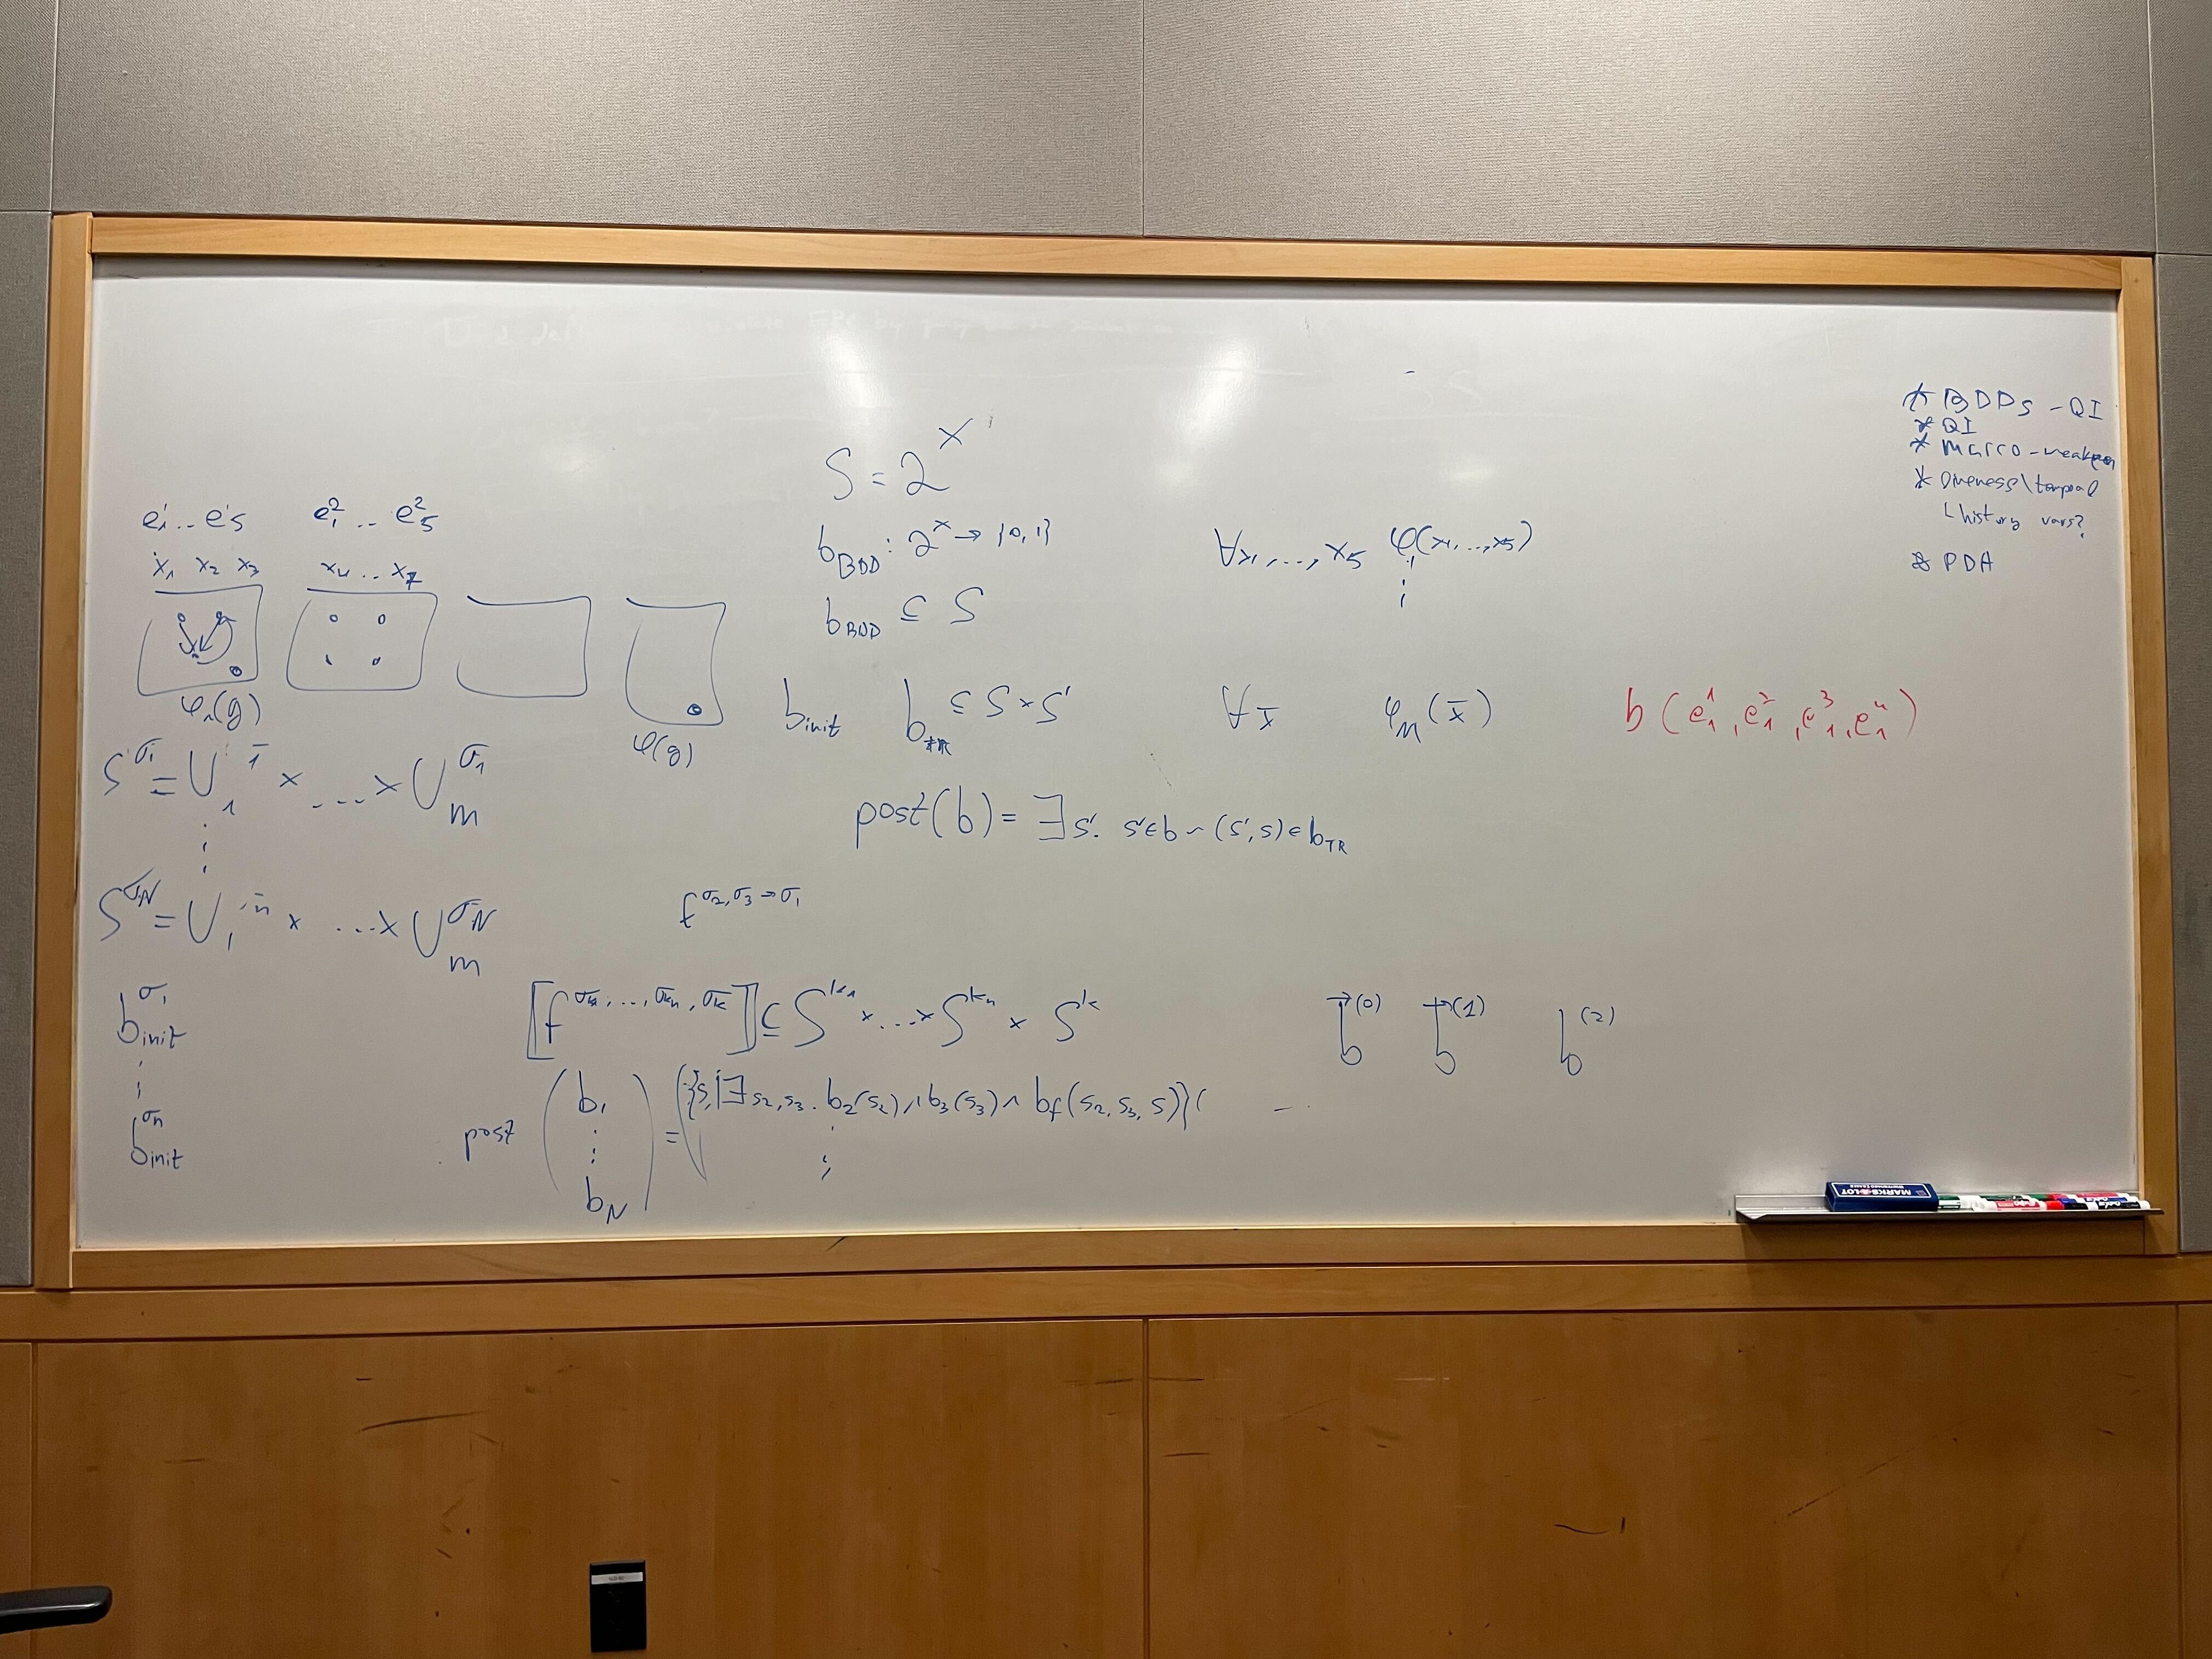 e₁¹ .. e₅¹   e₁² .. e₅²
x₁ x₂ x₃   x₄ .. x₇
φ₁(g)
φ(g)
S^σ₁ = U₁ × ... × U_m^σ₁
⋮
S^σN = U₁ × ... × U_m^σN
b_init^σ₁
⋮
b_init^σn
S = 2^X
b_BDD : 2^X → {0,1}
b_BDD ⊆ S
b_init   b_TR ⊆ S × S'
post(b) = ∃s'. s'∈b ∧ (s',s)∈b_TR
f^σ₂,σ₃→σ₁
[f^σk₁,...,σkn,σk] ⊆ S^k₁ × ... × S^kn × S^k
post (b₁ ⋮ b_N) = ({s | ∃s₂,s₃. b₂(s₂) ∧ b₃(s₃) ∧ b_f(s₂,s₃,s)}
⋮
∀x₁,...,x₅ φ₁(x₁,...,x₅)
⋮
∀x̄   φ_m(x̄)
b(e₁¹, e₁², e₁³, e₁⁴)
b⃗⁽⁰⁾   b⃗⁽¹⁾   b⁽²⁾
* BDDs - QI
* QI
* Marco - weaken
└ history vars?
* PDA
MARKS-A-LOT